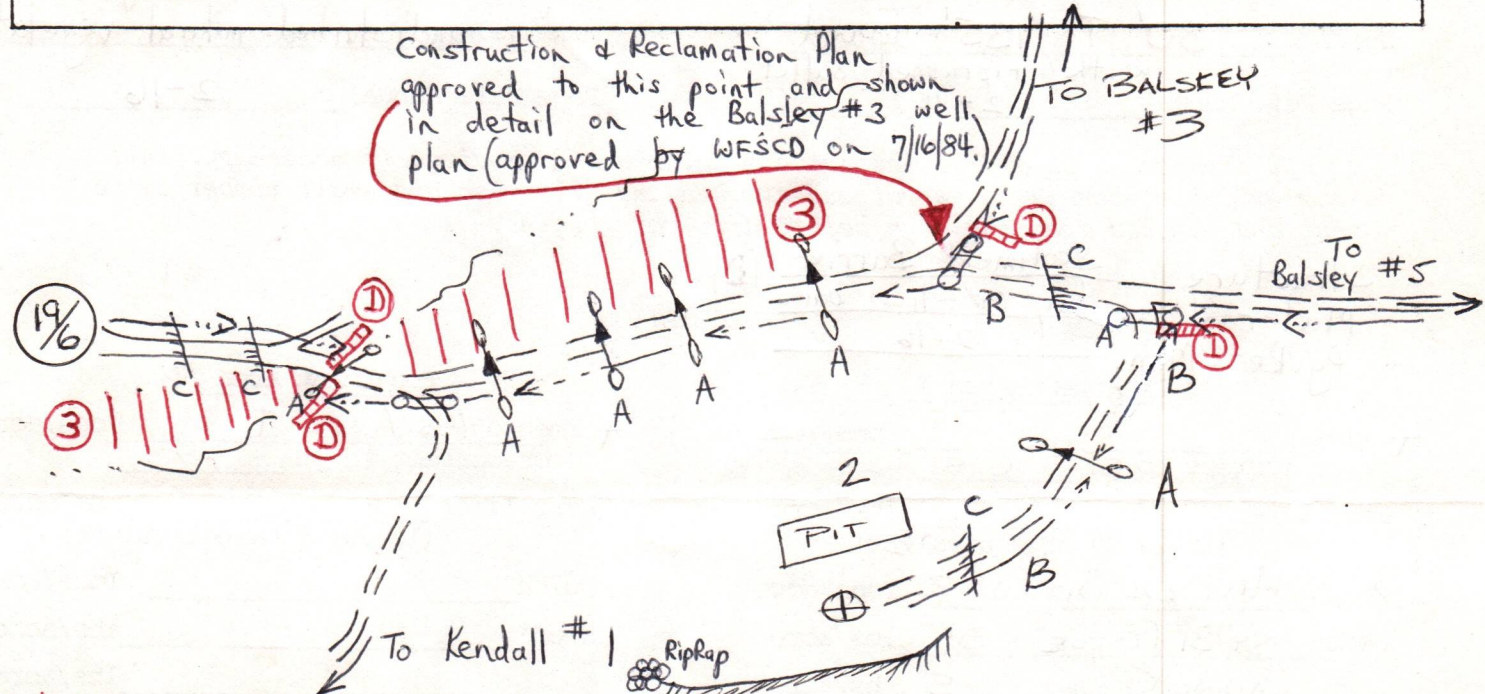 Construction & Reclamation Plan
approved to this point and shown
in detail on the Balsley #3 well
plan (approved by WFSCD on 7/16/84.)
TO BALSLEY
#3
3
D
C
To
Balsley #5
D
19/6
B
A
D
A
B
C
C
A
A
A
A
3
D
A
2
PIT
C
B
To Kendall #1
RipRap